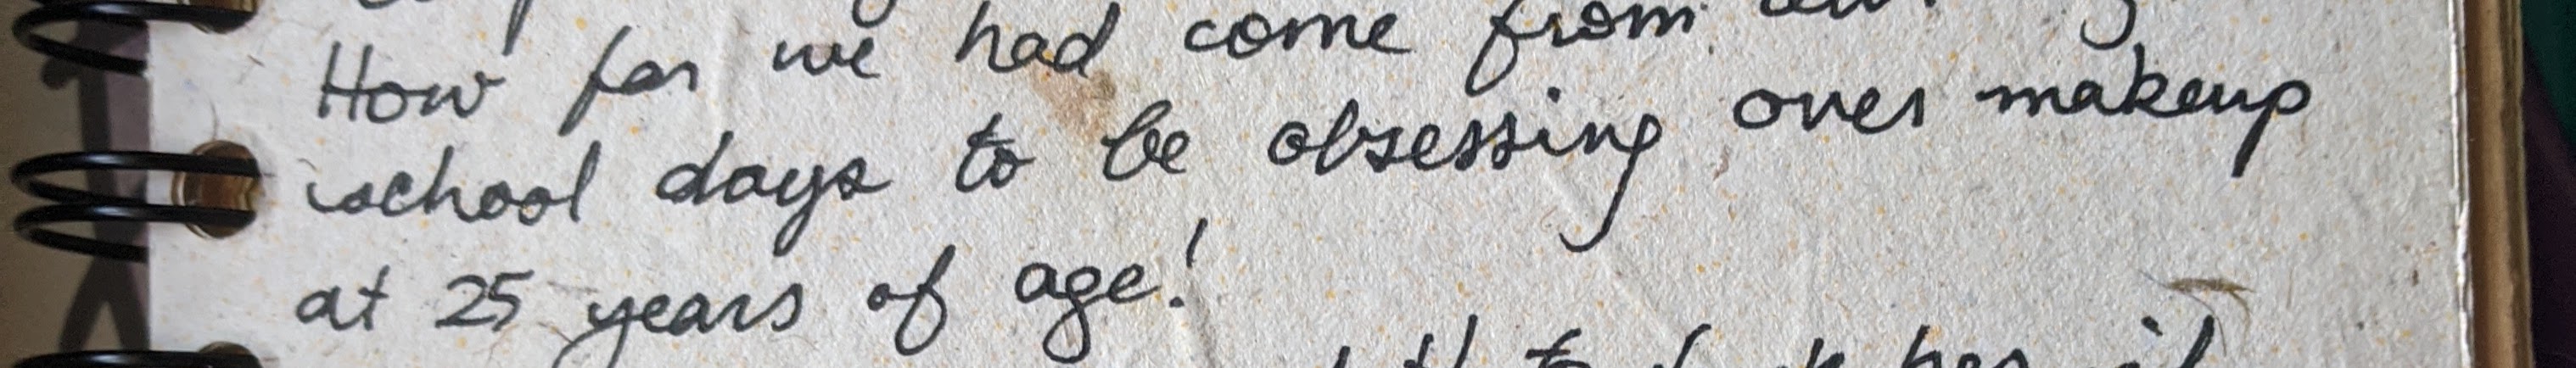 How far we had come from
school days to be obsessing over makeup
at 25 years of age!